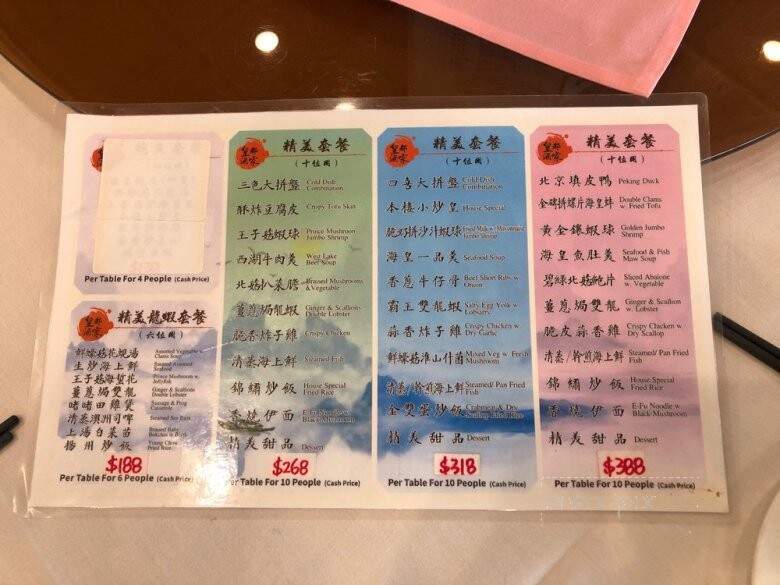 Per Table For 4 People (Cash Price)
皇都酒家
精美龍蝦套餐
(六位用)
生炒海上鮮
Ginger & Scallions Double Lobster
啫啫田雞煲
Sausage & Frog
上湯白菜苗
揚州炒飯
Young Chow Fried Rice
$188
Per Table For 6 People (Cash Price)
皇都酒家
精美套餐
(十位用)
三色大拼盤 Cold Dish Combination
酥炸豆腐皮 Crispy Tofu Skin
王子菇蝦球 Prince Mushroom Jumbo Shrimp
西湖牛肉羹 West Lake Beef Soup
北菇扒菜膽 Braised Mushrooms & Vegetable
薑蔥焗龍蝦 Ginger & Scallions Lobster
脆香炸子雞 Crispy Chicken
清蒸海上鮮 Steamed Fish
錦繡炒飯 House Special Fried Rice
香燒伊面 E-Fu Noodle w. Black Mushroom
精美甜品 Dessert
$268
Per Table For 10 People (Cash Price)
皇都酒家
精美套餐
(十位用)
四喜大拼盤 Cold Dish Combination
本樓小炒皇 House Special
脆奶拼沙汁蝦球 Fried Milk w. Mayonnaise Jumbo Shrimp
海皇一品羹 Seafood Soup
香蔥牛仔骨 Beef Short Ribs w. Onion
霸王雙龍蝦 Salty Egg Yolk w. Lobster
蒜香炸子雞 Crispy Chicken w. Dry Garlic
鮮蠔菇淮山什菌 Mixed Veg w. Fresh Mushroom
清蒸/幹煎海上鮮 Steamed/ Pan Fried Fish
金雙蛋炒飯
精美甜品 Dessert
$318
Per Table For 10 People (Cash Price)
皇都酒家
精美套餐
(十位用)
北京填皮鴨 Peking Duck
金磚拼螺片海皇蚌 Double Clams w. Fried Tofu
黃金鑲蝦球 Golden Jumbo Shrimp
海皇魚肚羹 Seafood & Fish Maw Soup
碧綠北菇鮑片 Sliced Abalone w. Vegetable
薑蔥焗雙龍 Ginger & Scallion w. Lobster
脆皮蒜香雞 Crispy Chicken w. Dry Scallop
清蒸/幹煎海上鮮 Steamed/ Pan Fried Fish
錦繡炒飯 House Special Fried Rice
香燒伊面 E-Fu Noodle w. Black Mushroom
精美甜品 Dessert
$388
Per Table For 10 People (Cash Price)